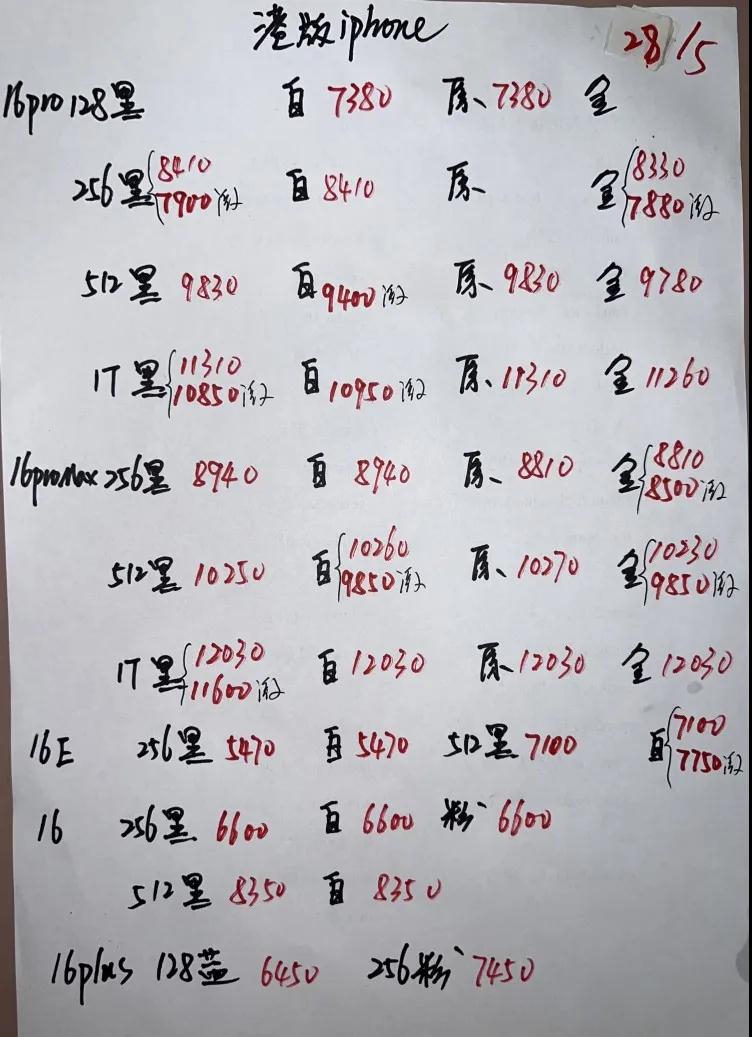 港版iphone 28/5
16pro 128黑 白 7380 原 7380 金
256黑 8410 7900激 白 8410 原 金 8330 7880激
512黑 9830 白 9400激 原 9830 金 9780
1T黑 11310 10850激 白 10950激 原 11310 金 11260
16proMax 256黑 8940 白 8940 原 8810 金 8810 8500激
512黑 10250 白 10260 9850激 原 10270 金 10230 9850激
1T黑 12030 11600激 白 12030 原 12030 金 12030
16E 256黑 5470 白 5470 512黑 7100 白 7100 7750激
16 256黑 6600 白 6600 粉 6600
512黑 8350 白 8350
16plus 128蓝 6450 256粉 7450